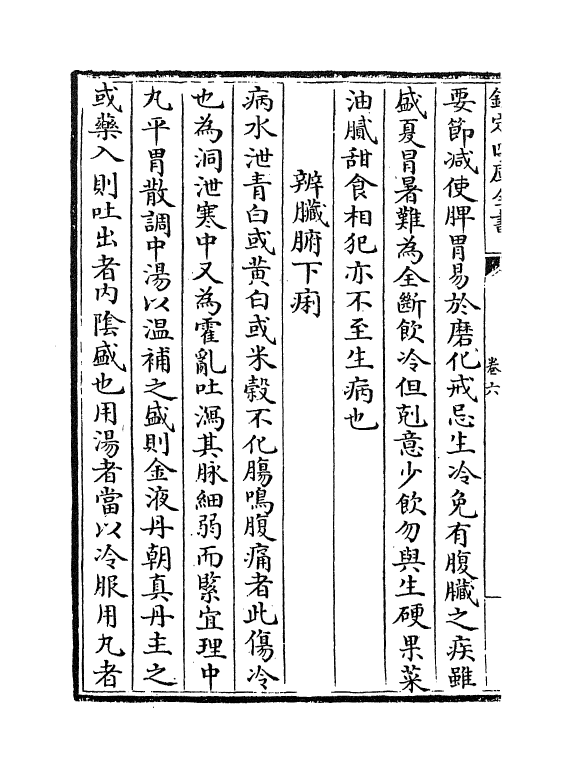 欽定四庫全書
卷六
要節減使脾胃易於磨化戒忌生冷免有腹臟之疾雖
盛夏冒暑難為全斷飲冷但剋意少飲勿與生硬果菜
油膩甜食相犯亦不至生病也
辨臟腑下痢
病水泄青白或黄白或米穀不化腸鳴腹痛者此傷冷
也為洞泄寒中又為霍亂吐瀉其脉細弱而緊宜理中
丸平胃散調中湯以温補之盛則金液丹朝真丹主之
或藥入則吐出者内陰盛也用湯者當以冷服用丸者